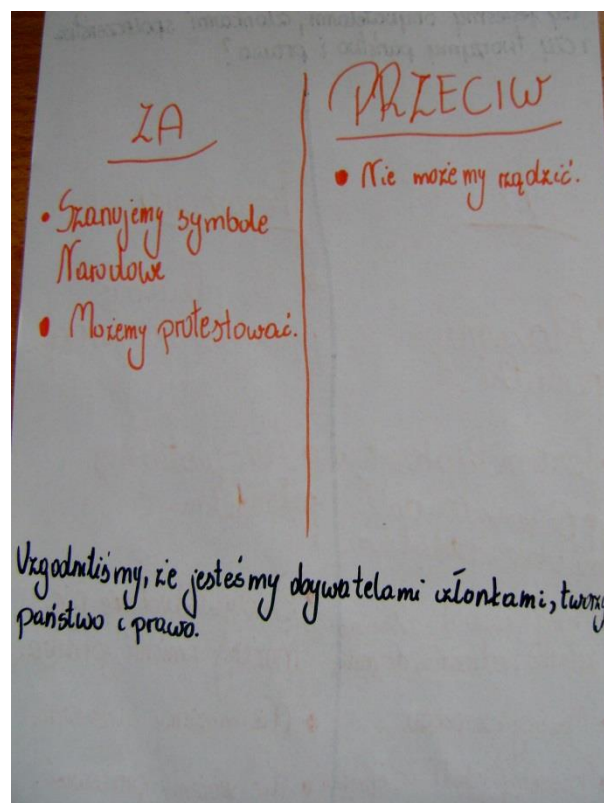 ZA
• Szanujemy symbole
Narodowe
• Możemy protestować.
PRZECIW
• Nie możemy rządzić.
Uzgodniliśmy, że jesteśmy obywatelami członkami, tworzy
państwo i prawo.